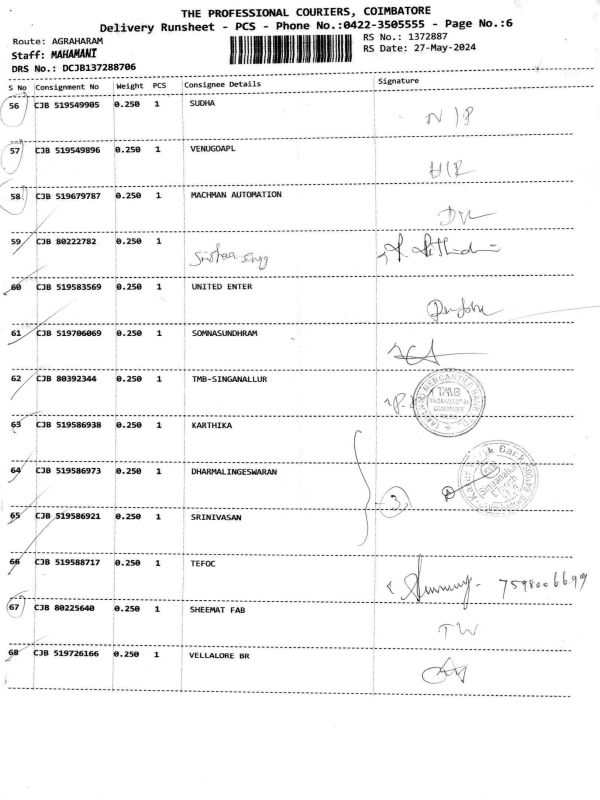 THE PROFESSIONAL COURIERS, COIMBATORE
Delivery Runsheet - PCS - Phone No.:0422-3505555 - Page No.:6
Route: AGRAHARAM
RS No.: 1372887
Staff: MAHAMANI
RS Date: 27-May-2024
DRS No.: DCJB137288706
S No Consignment No Weight PCS Consignee Details Signature
56 CJB 519549905 0.250 1 SUDHA
57 CJB 519549896 0.250 1 VENUGOAPL
58 CJB 519679787 0.250 1 MACHMAN AUTOMATION
DVL
59 CJB 80222782 0.250 1
60 CJB 519583569 0.250 1 UNITED ENTER
61 CJB 519706069 0.250 1 SOMNASUNDHRAM
62 CJB 80392344 0.250 1 TMB-SINGANALLUR
TMB
63 CJB 519586938 0.250 1 KARTHIKA
64 CJB 519586973 0.250 1 DHARMALINGESWARAN
3
65 CJB 519586921 0.250 1 SRINIVASAN
66 CJB 519588717 0.250 1 TEFOC
7598006699
67 CJB 80225640 0.250 1 SHEEMAT FAB
TW
68 CJB 519726166 0.250 1 VELLALORE BR